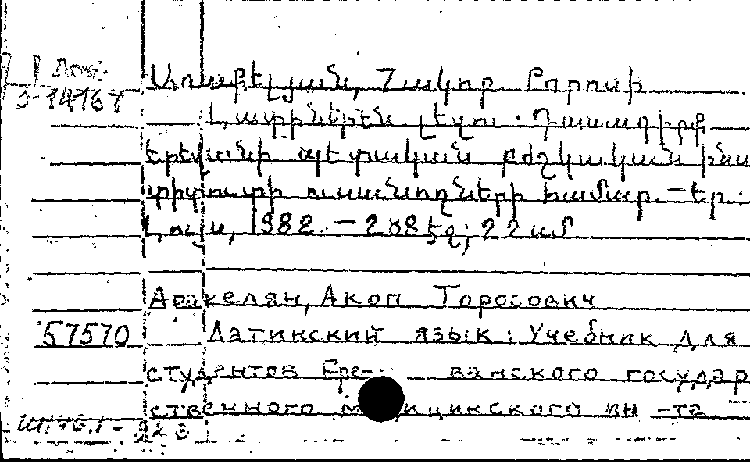 Առաքելյան, Հակոբ Թորոսի
Լատիներեն լեզու: Դասագիրք
Երևանի պետական բժշկական ինս
տիտուտի ուսանողների համար. - Եր.:
Լույս, 1982. - 288 էջ; 22 սմ
Аракелян, Акоп Торосович
57570 Латинский язык: Учебник для
студентов Ере- ванского государ
ственного медицинского ин-та